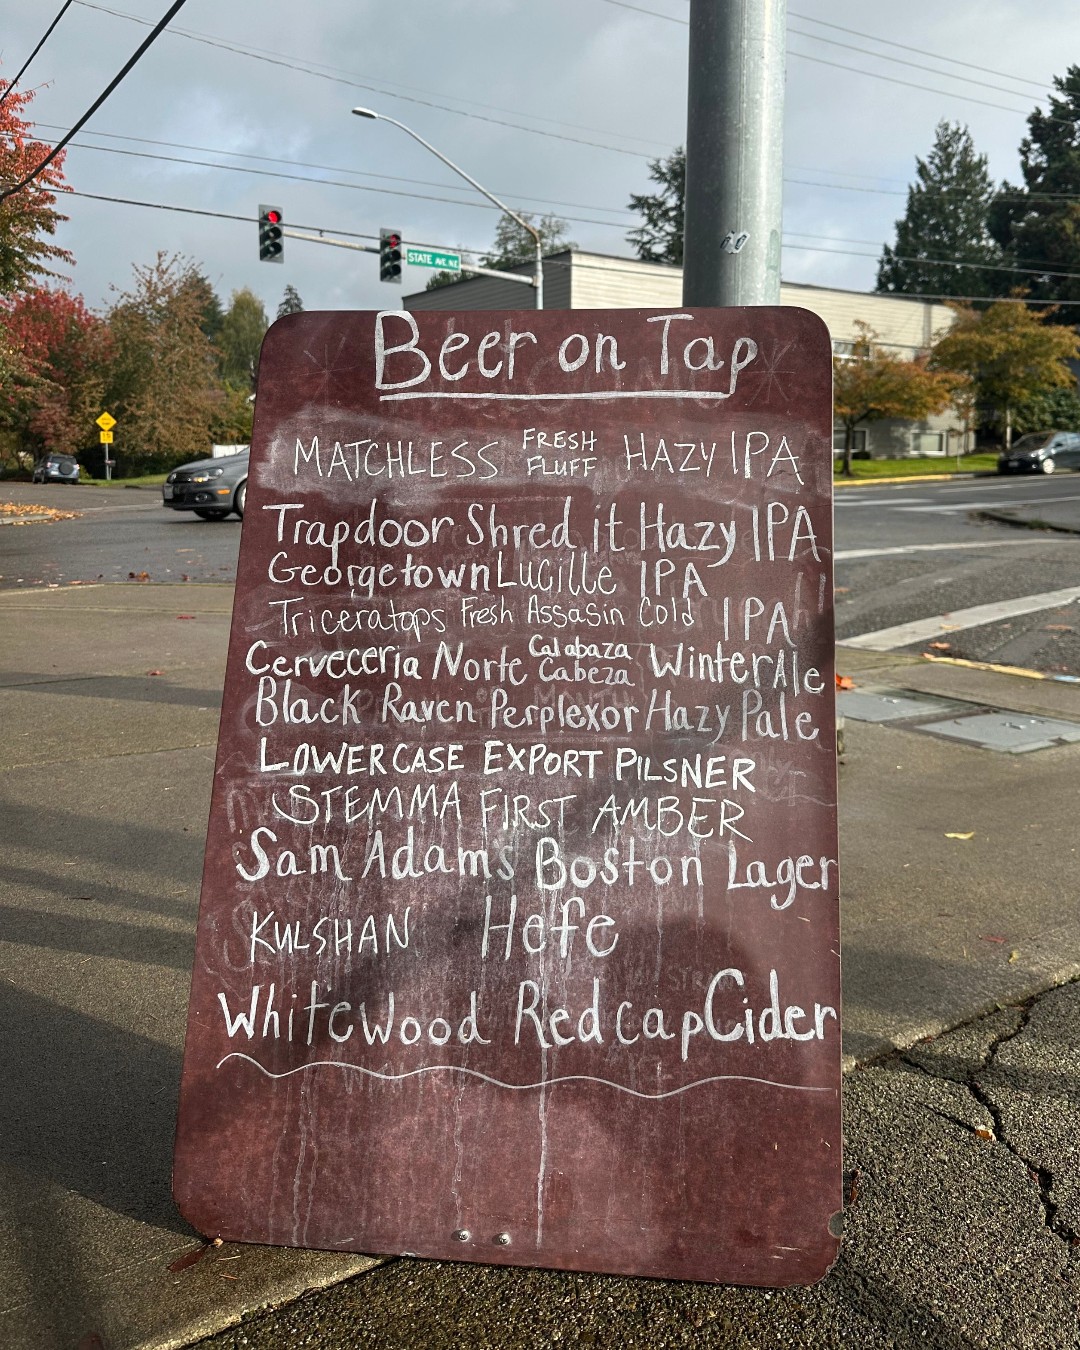 STATE AVE. N.E.
Beer on Tap
MATCHLESS FRESH FLUFF HAZY IPA
Trapdoor Shred it Hazy IPA
Georgetown Lucille IPA
Triceratops Fresh Assasin Cold IPA
Cerveceria Norte Calabaza Cabeza Winter Ale
Black Raven Perplexor Hazy Pale
LOWERCASE EXPORT PILSNER
STEMMA FIRST AMBER
Sam Adams Boston Lager
KULSHAN Hefe
WhiteWood Redcap Cider